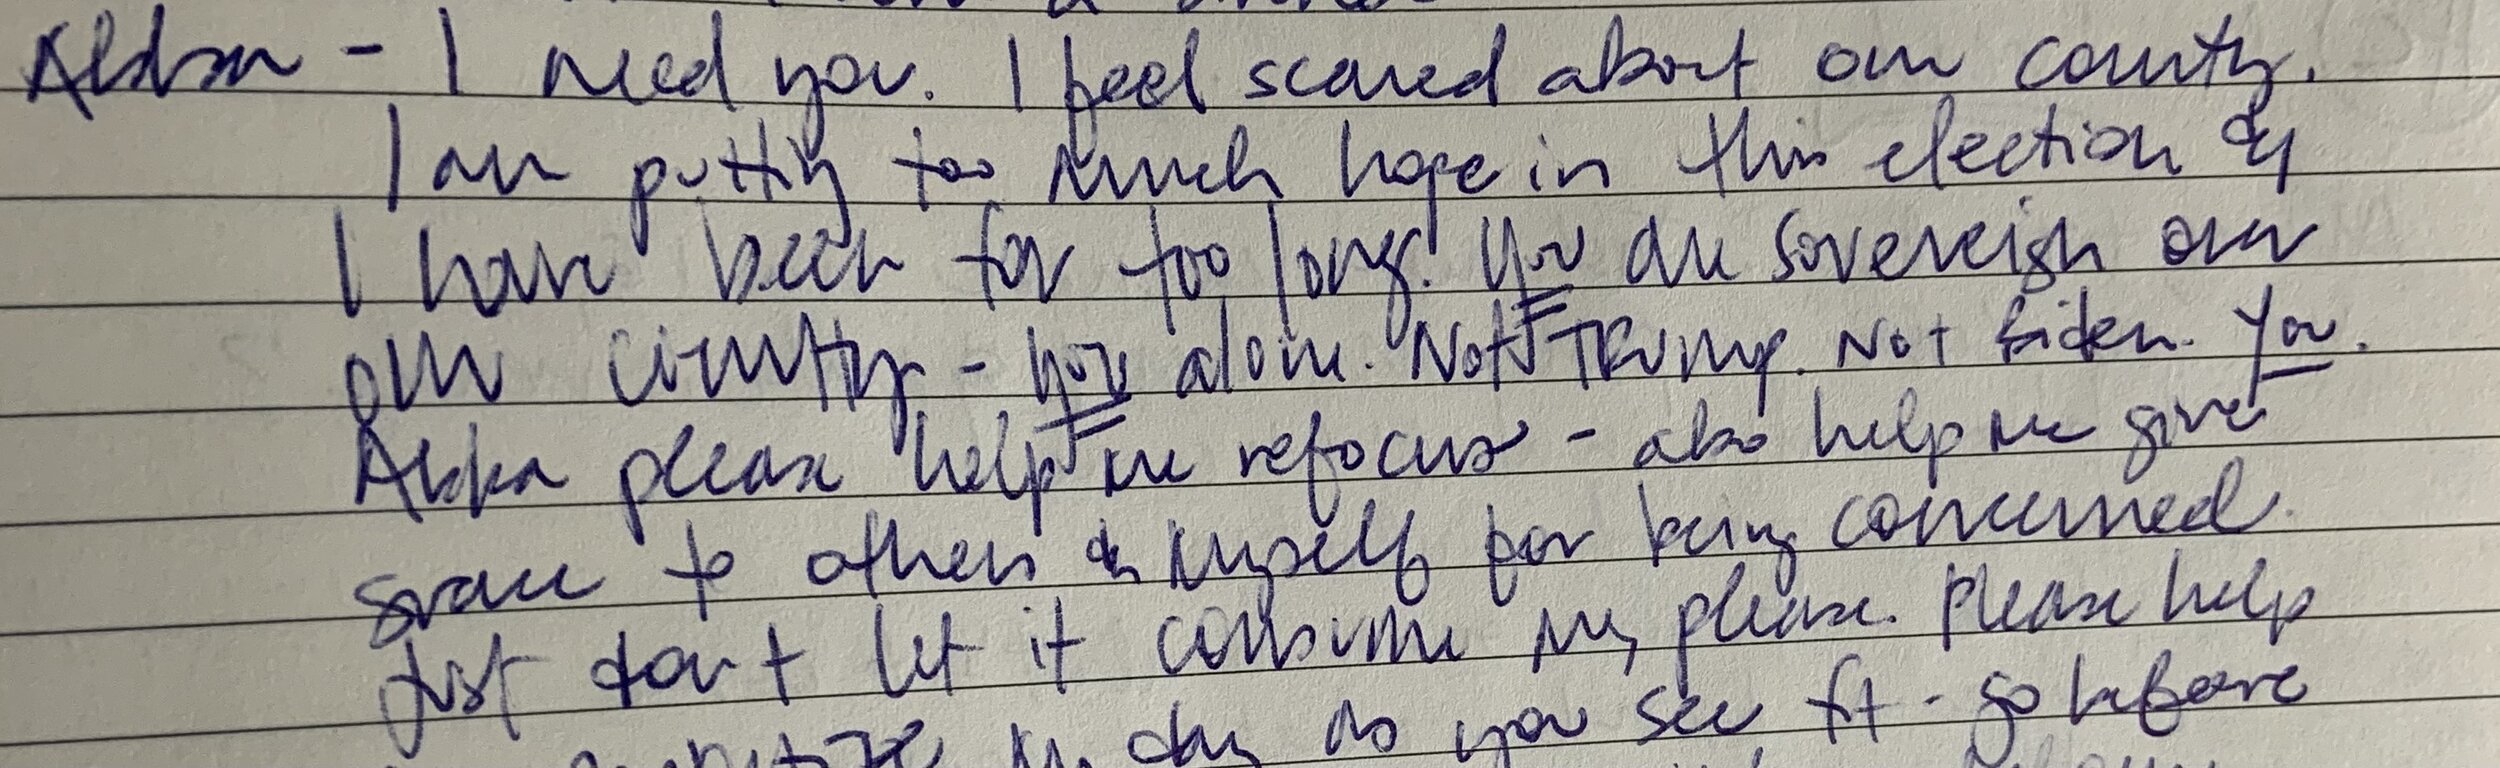 Abba - I need you. I feel scared about our country.
I am putting too much hope in this election &
I have been for too long. You are sovereign over
our country - you alone. Not Trump. Not Biden. You.
Abba please help me refocus - also help me give
grace to others & myself for being concerned.
Just don't let it consume me, please. Please help
my day as you see fit - go before